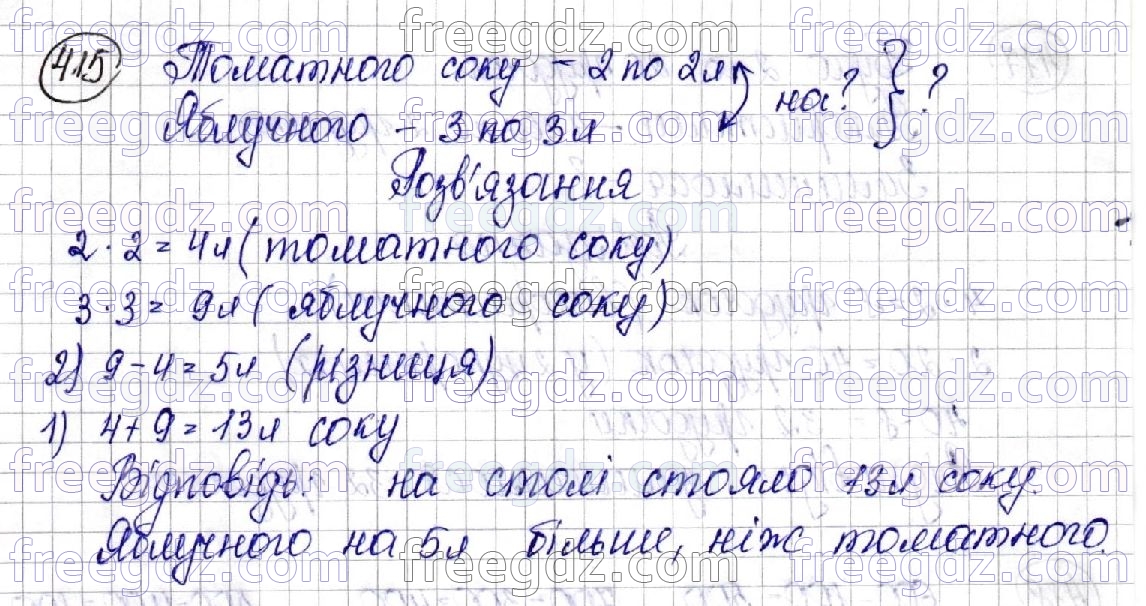 415 Томатного соку - 2 по 2л } на? } ?
Яблучного - 3 по 3л
Розв'язання
2 · 2 = 4л (томатного соку)
3 · 3 = 9л (яблучного соку)
2) 9 - 4 = 5л (різниця)
1) 4 + 9 = 13л соку
Відповідь: на столі стояло 13л соку.
Яблучного на 5л більше, ніж томатного.
freegdz.com